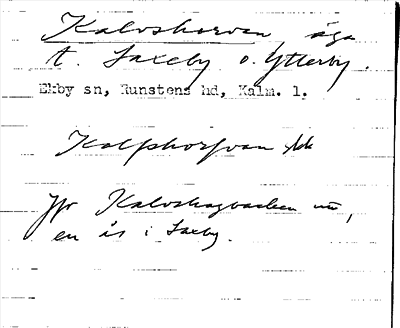 Kalvskorven, äga
t. Saxeby o. Ytterby.
Ekby sn, Runstens hd, Kalm. l.
Kalfskorfvan
Jfr Kalvshagbacken
en ås i Saxby.